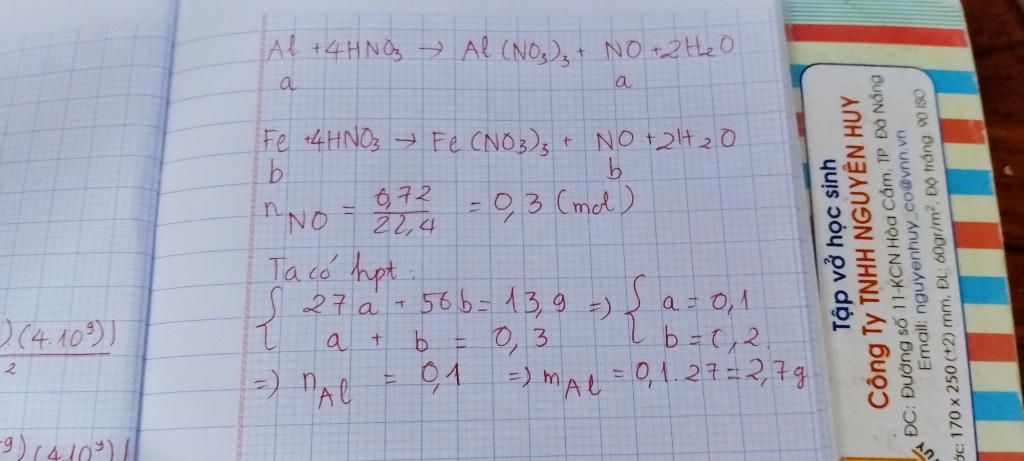 Al + 4HNO₃ → Al(NO₃)₃ + NO + 2H₂O
a a
Fe + 4HNO₃ → Fe(NO₃)₃ + NO + 2H₂O
b b
n_NO = 6,72/22,4 = 0,3 (mol)
Ta có hpt:
{ 27a + 56b = 13,9 => { a = 0,1
a + b = 0,3 b = 0,2.
=> n_Al = 0,1 => m_Al = 0,1.27 = 2,7g
)(4.10⁹)|
2
)(4.10⁹)|
Tập vở học sinh
Công Ty TNHH NGUYÊN HUY
ĐC: Đường số 11-KCN Hòa Cầm, TP. Đà Nẵng
Email: nguyenhuy_co@vnn.vn
170 x 250 (±2) mm. ĐL: 60gr/m², Độ trắng: 90 ISO